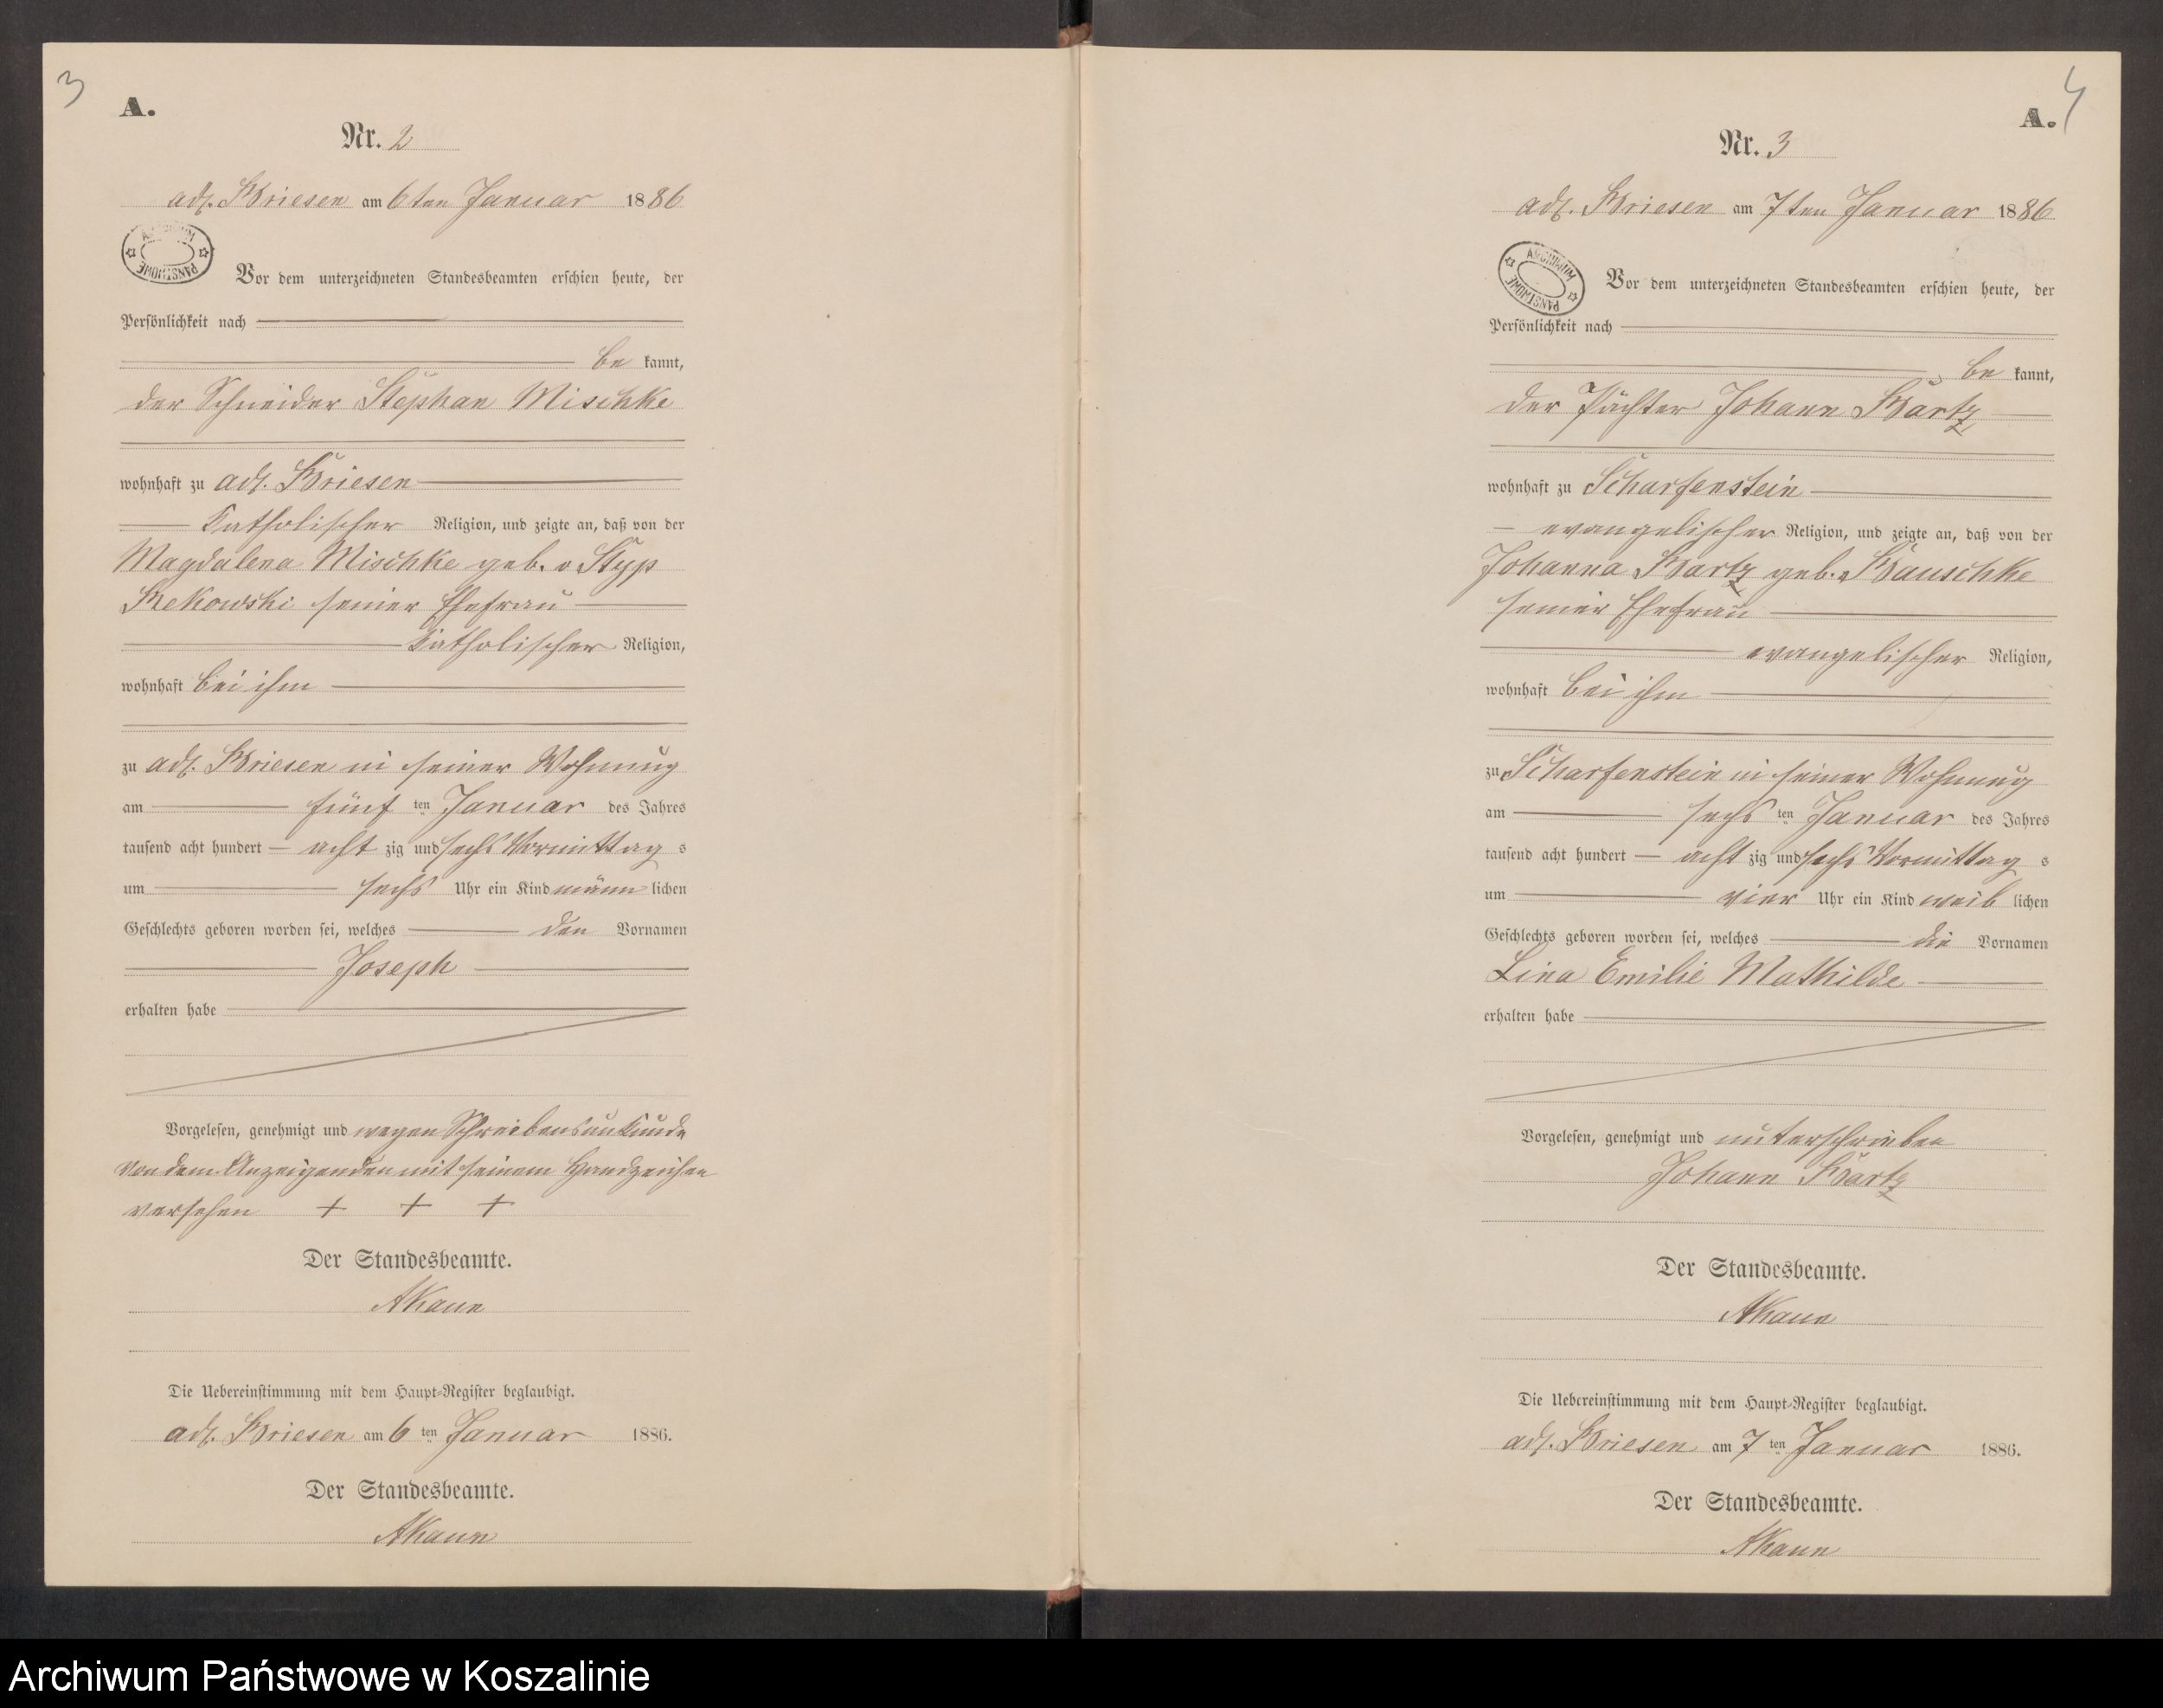 3
A.
Nr. 2
adl. Briesen am 6ten Januar 1886
ARCHIWUM PAŃSTWOWE
Vor dem unterzeichneten Standesbeamten erschien heute, der
Persönlichkeit nach
be kannt,
der Schneider Stephan Mischke
wohnhaft zu adl. Briesen
katholischer Religion, und zeigte an, daß von der
Magdalena Mischke geb. v Styp
Rekowski seiner Ehefrau
katholischer Religion,
wohnhaft bei ihm
zu adl. Briesen in seiner Wohnung
am fünf ten Januar des Jahres
tausend acht hundert acht zig und sechs Vormittag s
um sechs Uhr ein Kind männ lichen
Geschlechts geboren worden sei, welches den Vornamen
Joseph
erhalten habe
Vorgelesen, genehmigt und wegen Schreibensunkunde
von dem Anzeigenden mit seinem Handzeichen
versehen + + +
Der Standesbeamte.
Die Uebereinstimmung mit dem Haupt-Register beglaubigt.
adl. Briesen am 6 ten Januar 1886.
Der Standesbeamte.
4
A.
Nr. 3
adl. Briesen am 7ten Januar 1886
ARCHIWUM PAŃSTWOWE
Vor dem unterzeichneten Standesbeamten erschien heute, der
Persönlichkeit nach
be kannt,
der Pächter Johann Bartz
wohnhaft zu Scharfenstein
evangelischer Religion, und zeigte an, daß von der
Johanna Bartz geb. Bauschke
seiner Ehefrau
evangelischer Religion,
wohnhaft bei ihm
zu Scharfenstein in seiner Wohnung
am sechs ten Januar des Jahres
tausend acht hundert acht zig und sechs Vormittag s
um vier Uhr ein Kind weib lichen
Geschlechts geboren worden sei, welches die Vornamen
Lina Emilie Mathilde
erhalten habe
Vorgelesen, genehmigt und unterschrieben
Johann Bartz
Der Standesbeamte.
Die Uebereinstimmung mit dem Haupt-Register beglaubigt.
adl. Briesen am 7 ten Januar 1886.
Der Standesbeamte.
Archiwum Państwowe w Koszalinie